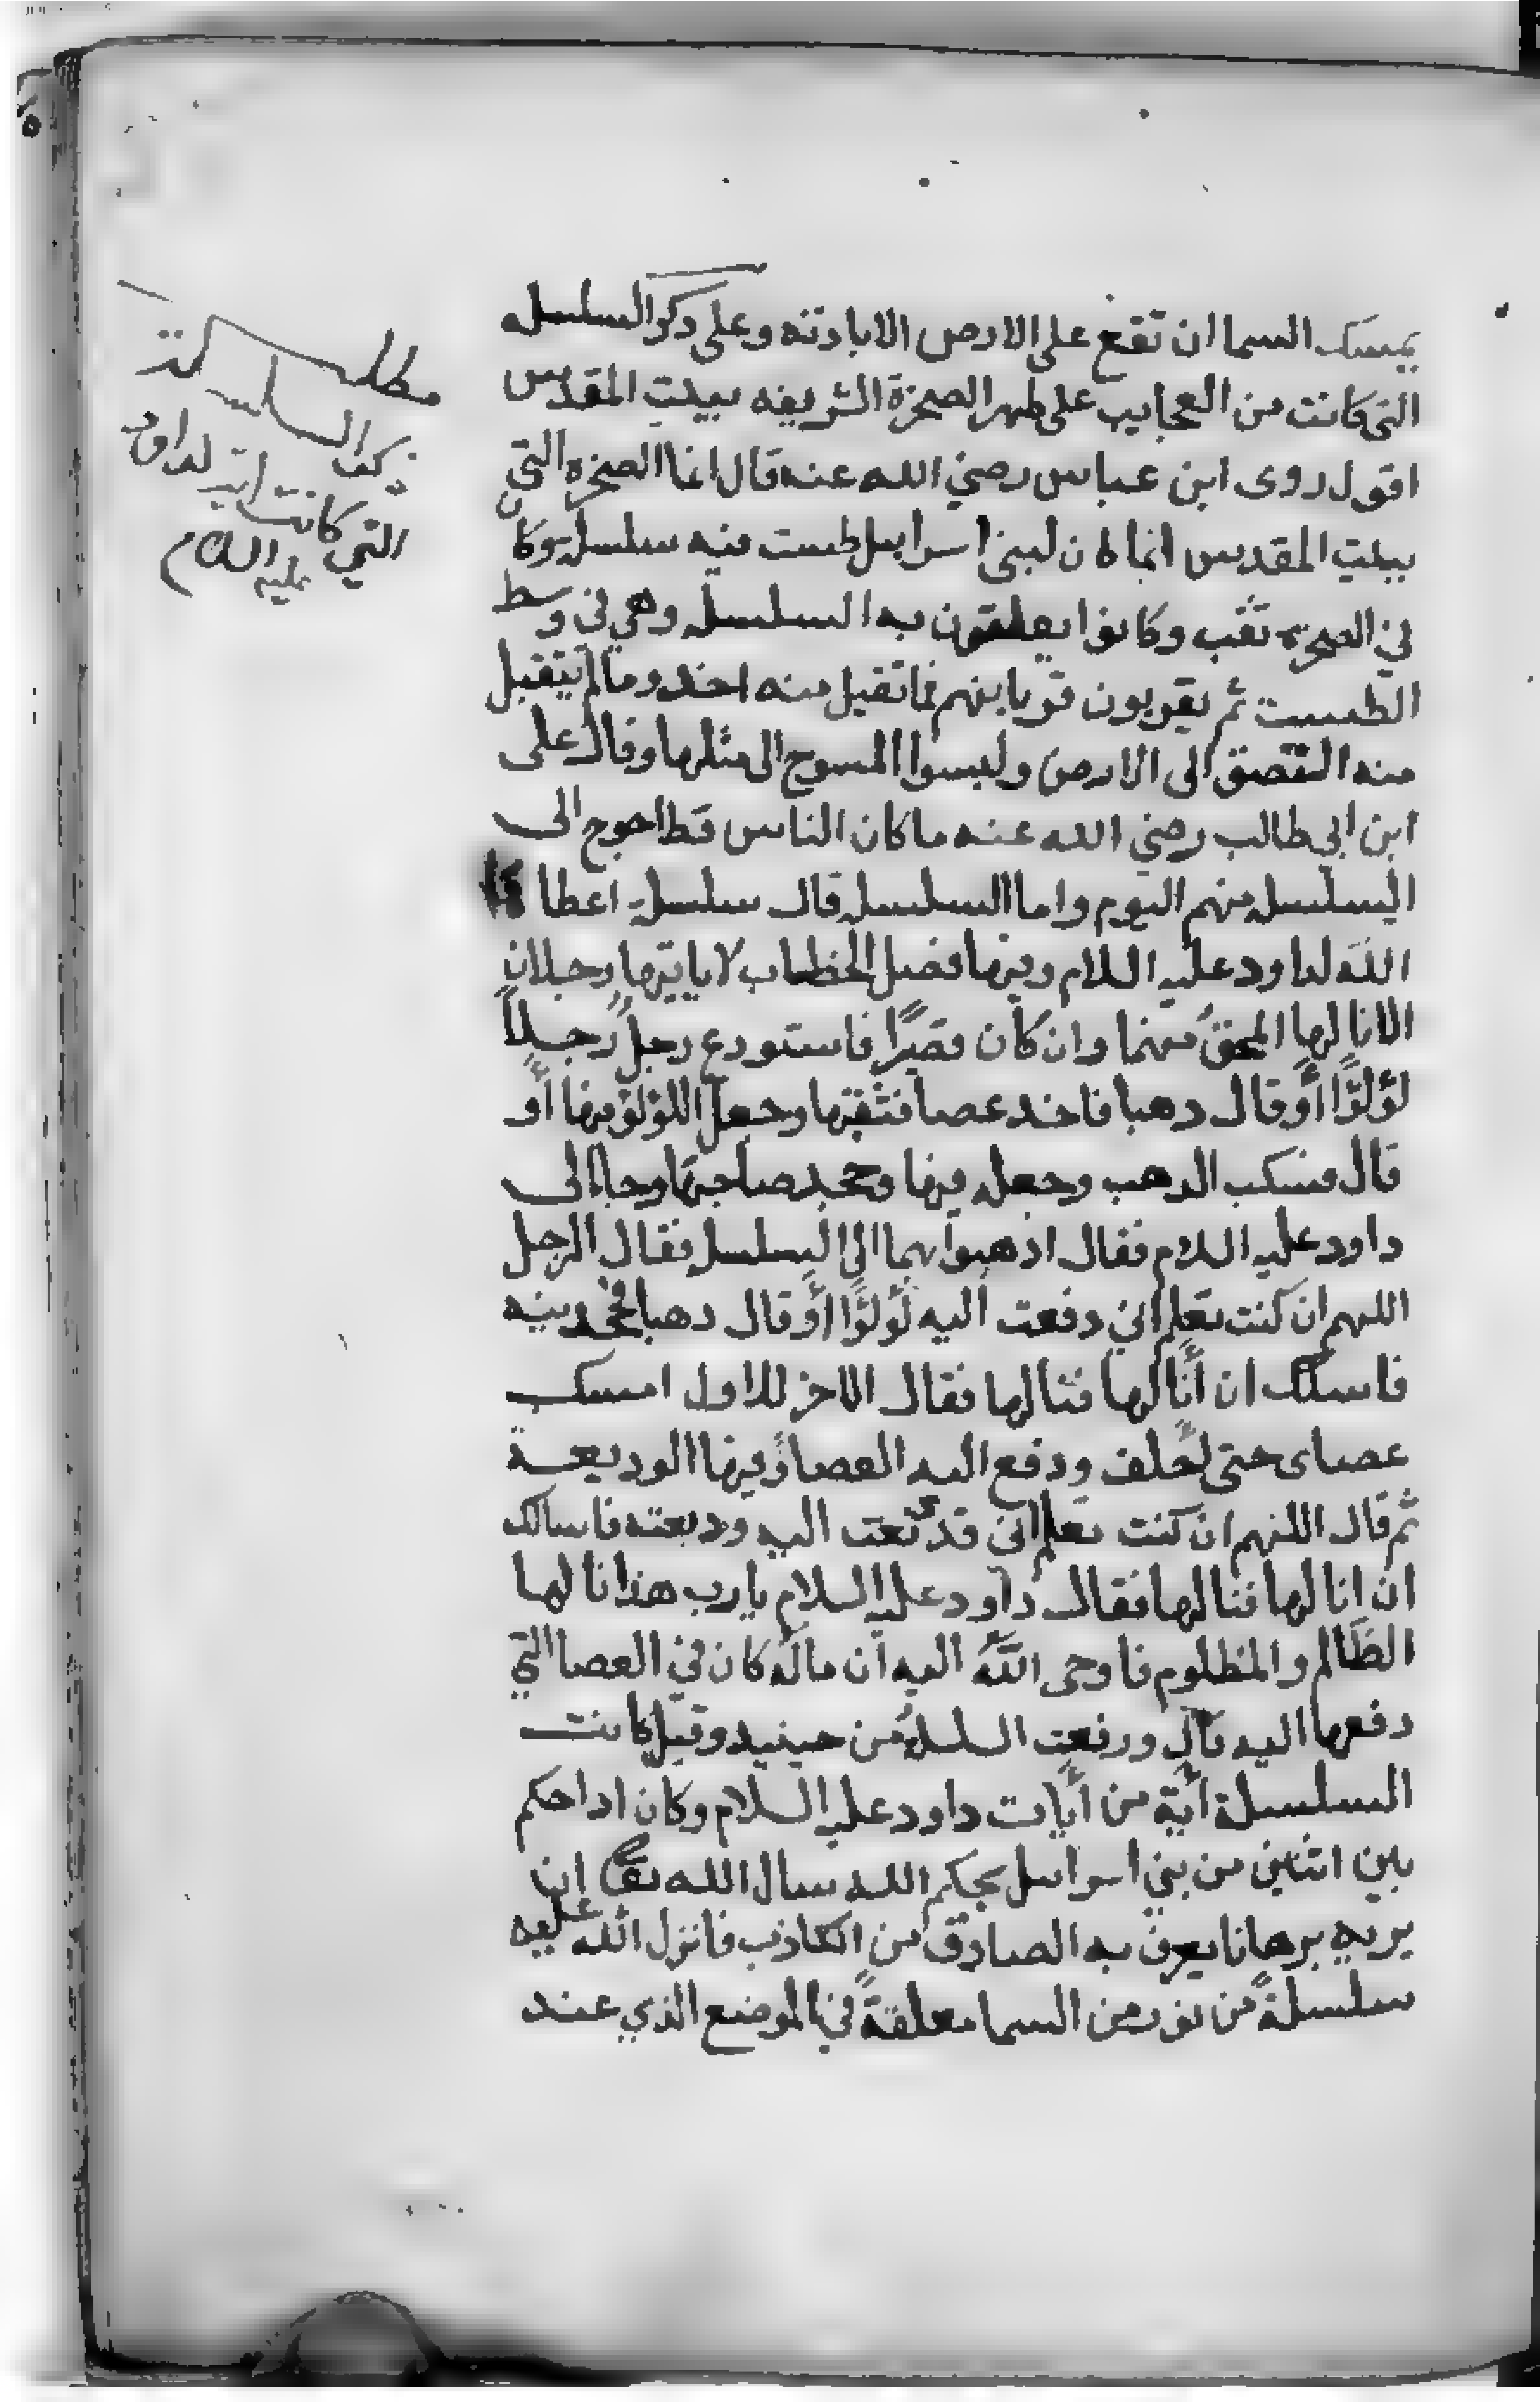 يمسك السما ان تقع على الارض الا بادنه وعلى ذكر السلسله
التى كانت من العجايب على ظهر الصخرة الشريفه ببيت المقدس
اقول روى ابن عباس رضي الله عنه قال انما الصخره التي
ببيت المقدس انما كان لبني اسراييل طست فيه سلسله وكان
في الصخرة ثقب وكانوا يعلقون به السلسله وهي في وسط
الطست ثم يقربون قربابنهم فما تقبل منه اخد وما لم يتقبل
منه التصق الى الارض ولبسوا المسوح الى مثلها وقال على
ابن ابي طالب رضي الله عنه ما كان الناس قط احوج الى
السلسله منهم اليوم واما السلسله قال سلسله اعطاها
الله لداود عليه السلام وفيها فضل الخطاب لا ياتيها رجلان
الا نالها المحق منهما وان كان قصيرًا فاستودع رجلٌ رجلاً
لؤلؤًا أو قال دهبا فاخد عصا فثقبها وجعل اللؤلؤ فيها أو
قال فسكب الدهب وجعله فيها وجحد صاحبها وجاا الى
داود عليه السلام فقال اذهبوا بهما الى السلسله فقال الرجل
اللهم ان كنت تعلم اني دفعت اليه لؤلؤًا أو قال دهبا فجحدنيه
فاسلك ان أنالها فنالها فقال الاخر للاول امسك
عصاى حتى احلف ودفع اليه العصا وفيها الوديعة
ثم قال اللهم ان كنت تعلم انى قد دفعت اليه وديعته فاسالك
ان انالها فنالها فقال داود عليه السلام يا رب هذا نالها
الظالم والمظلوم فاوحى الله اليه ان ماله كان في العصا التي
دفعها اليه قال ورفعت السلسلة من حينيد وقيل كانت
السلسلة أية من أيات داود عليه السلام وكان ادا حكم
بين اثنين من بني اسرايل بحكم الله سال الله تعا ان
يريه برهانا يعرف به الصادق من الكاذب فانزل الله عليه
سلسلةً من نور من السما معلقةً في الموضع الذي عند
مطلب
ذكر السلسلة
التي كانت
لداود
عليه السلام